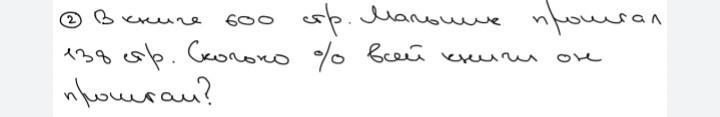 ② В книге 600 стр. Мальчик прочитал
138 стр. Сколько % всей книги он
прочитал?